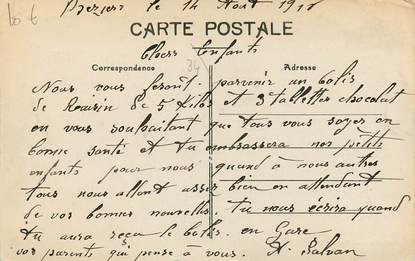 Beziers le 14 Aout 191
CARTE POSTALE
Chers Enfants
Correspondance
Adresse
Nous vous feront parvenir un colis
de Raisin de 5 Kilos et 3 tablettes chocolat
en vous souhaitant que tous vous soyez en
bonne santé et tu embrassera nos petits
enfants pour nous quand à nous autres
tous nous allont assez bien en attendant
de vos bonnes nouvelles. tu nous écrira quand
tu aura reçu le colis. en Gare
vos parents qui pense à vous. A. Salvan